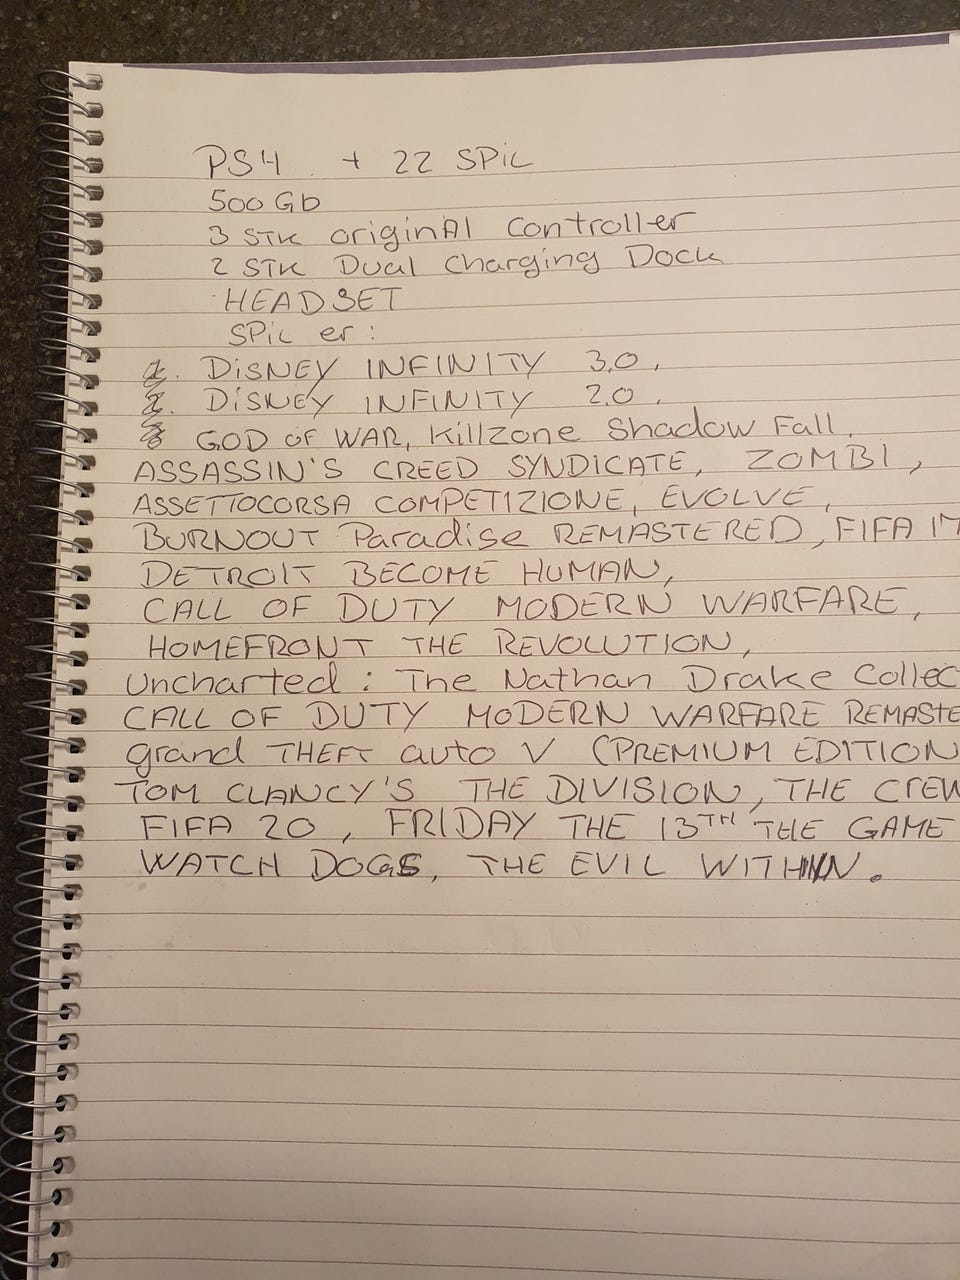 PS4 + 22 SPiL
500 Gb
3 STK originAl Controller
2 STK Dual Charging Dock
HEADSET
SPiL er :
DiSNEY INFINITY 3,0 ,
DiSNEY INFINITY 2,0 ,
GOD OF WAR, Killzone Shadow Fall,
ASSASSIN'S CREED SYNDICATE, ZOMBI ,
ASSETTOCORSA COMPETIZIONE, EVOLVE ,
BURNOUT Paradise REMASTERED , FIFA 17
DETROIT BECOME HUMAN,
CALL OF DUTY MODERN WARFARE,
HOMEFRONT THE REVOLUTION,
Uncharted : The Nathan Drake Collec
CALL OF DUTY MODERN WARFARE REMASTE
grand THEFT auto V (PREMIUM EDITION
TOM CLANCY'S THE DIVISION, THE CREW
FIFA 20 , FRIDAY THE 13TH THE GAME
WATCH DOGS, THE EVIL WITHIN.